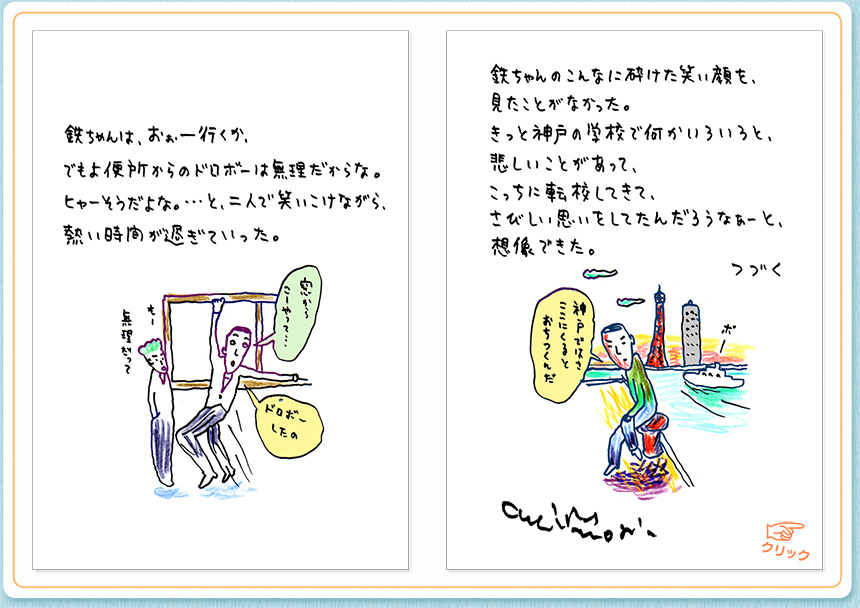 鉄ちゃんは、おぉー行くか、
でもよ便所からのドロボーは無理だからな。
ヒャーそうだよな。…と、二人で笑いこけながら、
熱い時間が過ぎていった。
窓から
こーやって…
もー
無理だって
ドロボー
したの
鉄ちゃんのこんなに砕けた笑い顔を、
見たことがなかった。
きっと神戸の学校で何かいろいろと、
悲しいことがあって、
こっちに転校してきて、
さびしい思いをしてたんだろうなぁーと、
想像できた。
つづく
神戸ではさ
ここにくると
おちつくんだ
ボー
クリック